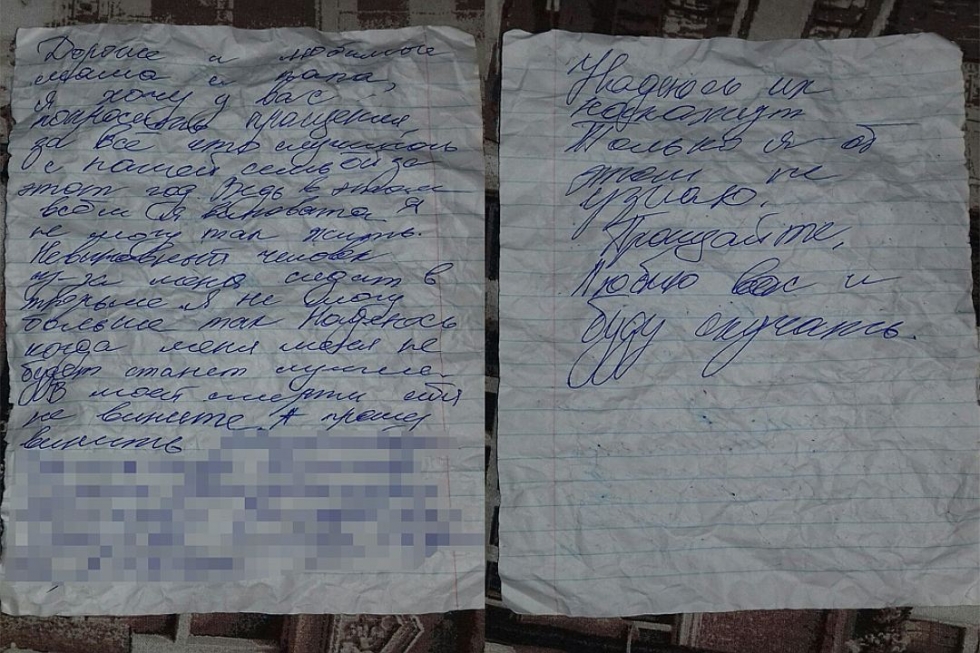 Дорогие и любимые
мама и папа,
Я хочу у вас
попросить прощения
за всё что случилось
с нашей семьёй за
этот год Ведь в этом
всём я виновата Я
не могу так жить.
Невиновный человек
из-за меня сидит в
тюрьме я не могу
больше так Надеюсь
когда меня не
будет станет лучше.
В моей смерти себя
не вините. Я прошу
винить
Надеюсь их
накажут
Только я об
этом не
узнаю.
Прощайте.
Люблю вас и
буду скучать.